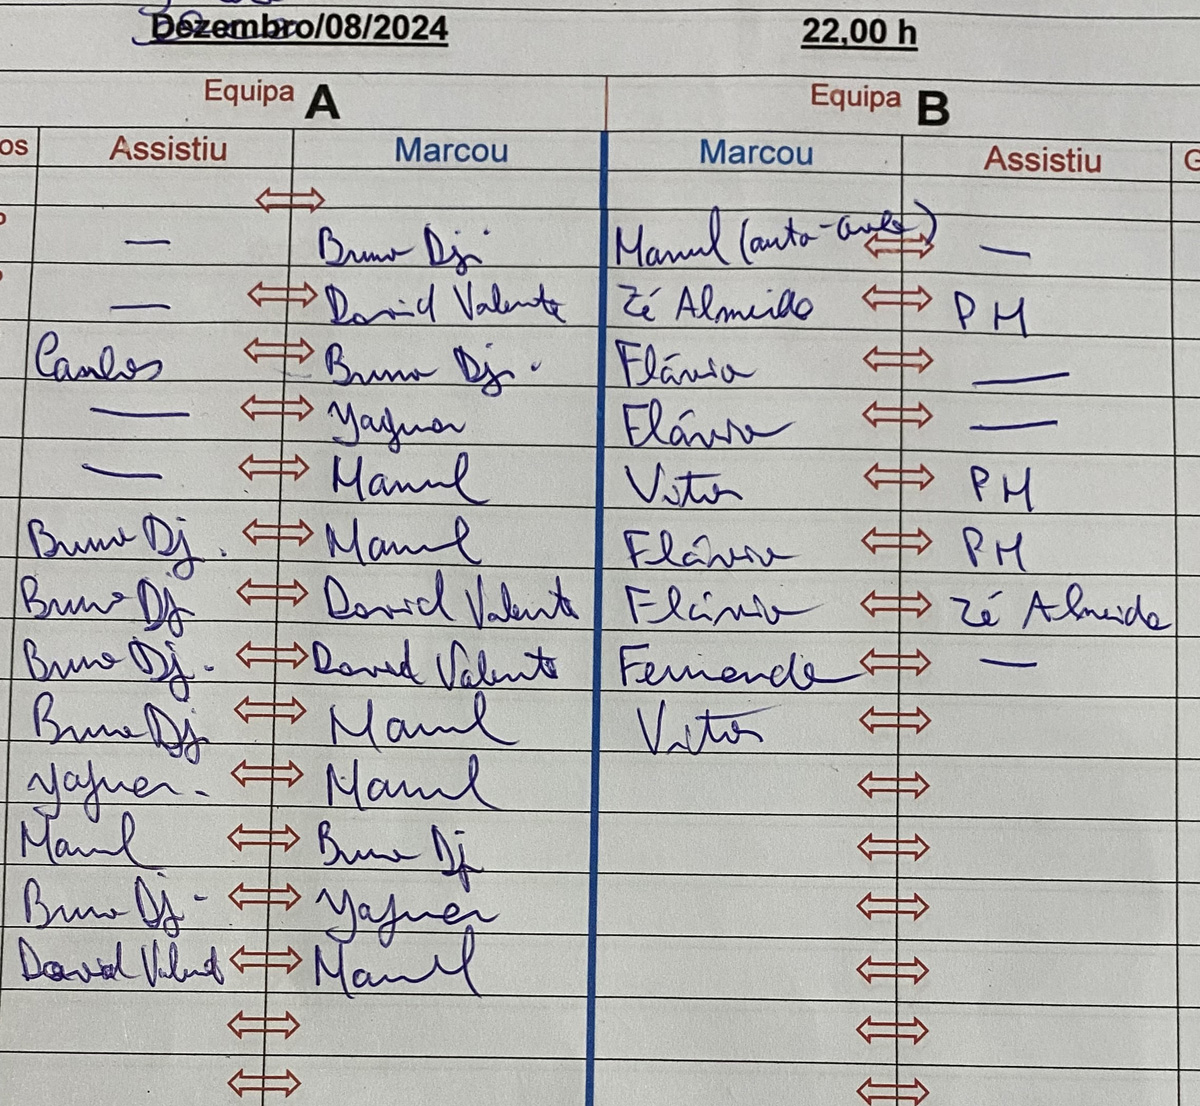 Dezembro/08/2024 22,00 h
Equipa A Equipa B
os Assistiu Marcou Marcou Assistiu G
— Bruno Dj. Manuel (auto-golo) —
— David Valente Zé Almeida PH
Carlos Bruno Dj. Flávio —
— Yaguer Flávio —
— Manuel Vitor PH
Bruno Dj. Manuel Flávio PH
Bruno Dj David Valente Flávio Zé Almeida
Bruno Dj. David Valente Fernando —
Bruno Dj Manuel Vitor
Yaguer. Manuel
Manuel Bruno Dj
Bruno Dj - Yaguer
David Valent Manuel